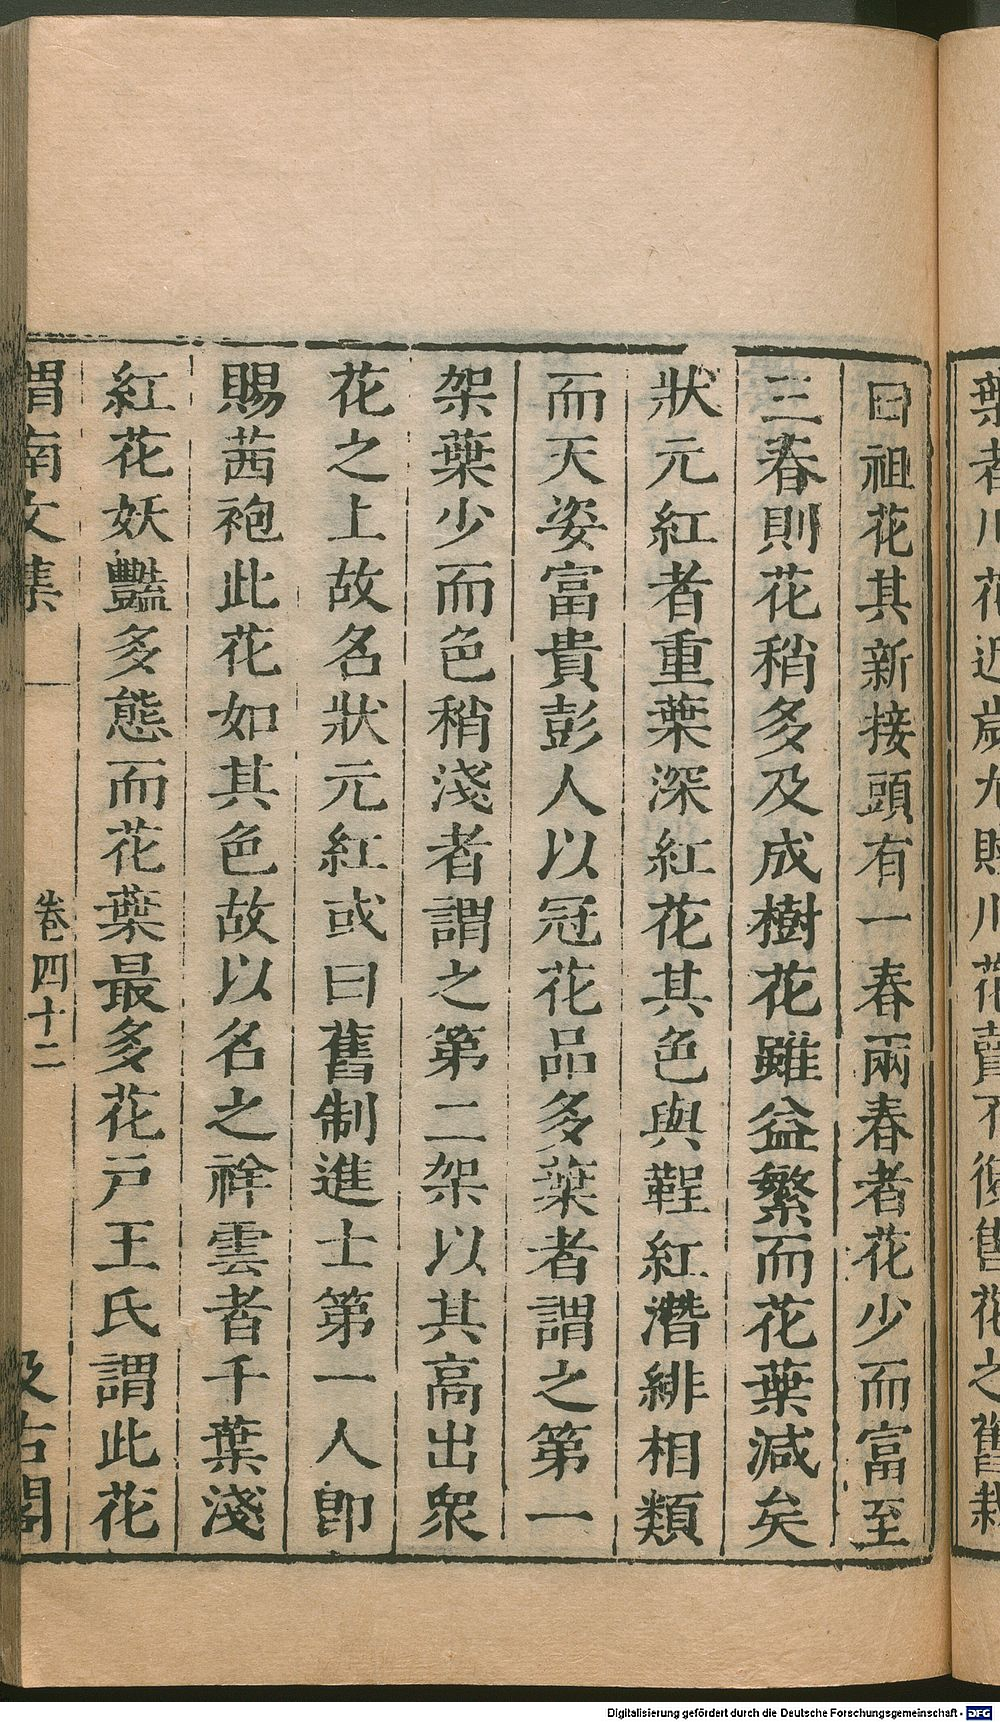 葉者川花近歲尤賤川花賣不復售花之舊栽
曰祖花其新接頭有一春兩春者花少而富至
三春則花稍多及成樹花雖益繁而花葉減矣
狀元紅者重葉深紅花其色與鞓紅潛緋相類
而天姿富貴彭人以冠花品多葉者謂之第一
架葉少而色稍淺者謂之第二架以其高出眾
花之上故名狀元紅或曰舊制進士第一人即
賜茜袍此花如其色故以名之祥雲者千葉淺
紅花妖豔多態而花葉最多花戶王氏謂此花
渭南文集 卷四十二 汲古閣
Digitalisierung gefördert durch die Deutsche Forschungsgemeinschaft - DFG